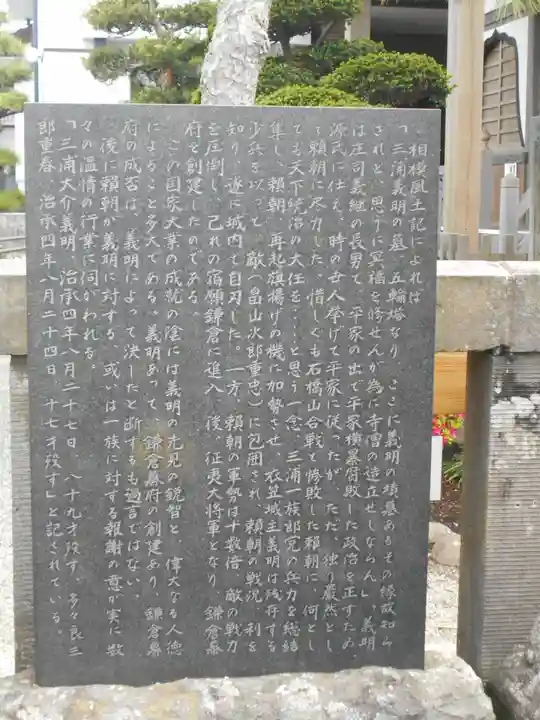 、相模風土記によれば
「三浦義明の墓、五輪塔なり ここに義明の墳墓あるその縁故知ら
されど、思うに冥福を修せんが為に寺僧の造立せしならん」、義明
は庄司義継の長男で、平家の出で平家横暴腐敗した政治を正すため、
源氏に仕え、時の世人挙げて平家に従ったが、ただ、独り厳然とし
て頼朝に尽力した。惜しくも石橋山合戦で惨敗した頼朝に、何とし
ても天下統治の大任を…と思う一念、三浦一族郎党の兵力を総結
集し、頼朝、再起旗揚げの機に加勢させ、衣笠城主義明は残存する
少兵を以って、敵(畠山次郎重忠)に包囲され、頼朝の戦況、利を
知り、遂に城内で自刃した。一方、頼朝の軍勢は十数倍、敵の戦力
を圧倒し、己れの宿願鎌倉に進入、後、征夷大将軍となり、鎌倉幕
府を創建したのである。
この国家大業の成就の陰には義明の先見の鋭智と、偉大なる人徳
によること多大である。義明あって、鎌倉幕府の創建あり、鎌倉幕
府の成否は、義明によって決したと断ずるも過言ではない。
、後に頼朝が義明に対する、或いは一族に対する報謝の意が実に数
々の温情の行業に伺がわれる。
「三浦大介義明、治承四年八月二十七日、八十九才歿す、多々良三
郎重春、治承四年八月二十四日、十七才歿す」と記されている。